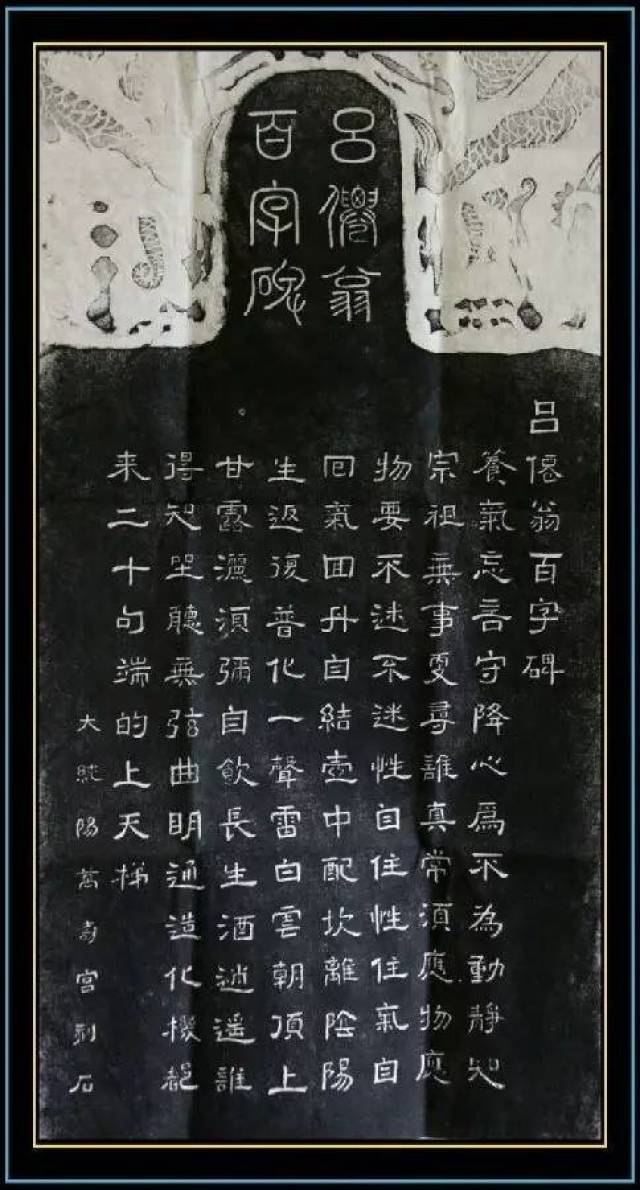 呂僊翁
百字碑
呂僊翁百字碑
養氣忘言守降心爲不為動靜知
宗祖無事更尋誰真常須應物應
物要不迷不迷性自住性住氣自
回氣回丹自結壺中配坎離陰陽
生返復普化一聲雷白雲朝頂上
甘露灑須彌自飲長生酒逍遥誰
得知坐聽無弦曲明通造化機都
来二十句端的上天梯
大純陽萬壽宮刻石